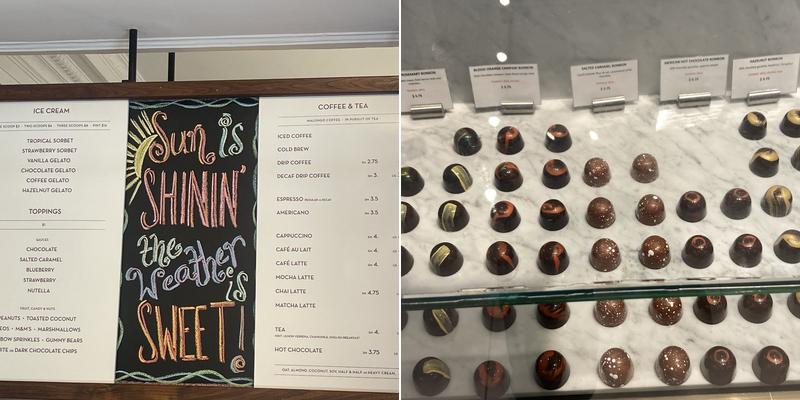 ICE CREAM
TWO SCOOPS $4 • THREE SCOOPS $6 • PINT $14
TROPICAL SORBET
STRAWBERRY SORBET
VANILLA GELATO
CHOCOLATE GELATO
COFFEE GELATO
HAZELNUT GELATO
TOPPINGS
$1
SAUCES
CHOCOLATE
SALTED CARAMEL
BLUEBERRY
STRAWBERRY
NUTELLA
FRUIT, CANDY & NUTS
PEANUTS • TOASTED COCONUT
M&M'S • MARSHMALLOWS
SPRINKLES • GUMMY BEARS
DARK CHOCOLATE CHIPS
Sun is
SHININ'
the
Weather
is
SWEET!
COFFEE & TEA
MALONGO COFFEE · IN PURSUIT OF TEA
ICED COFFEE
COLD BREW
DRIP COFFEE 2.75
DECAF DRIP COFFEE 3.
ESPRESSO REGULAR or DECAF 3.5
AMERICANO 3.5
CAPPUCCINO 4.
CAFÉ AU LAIT 4.
CAFÉ LATTE 4.
MOCHA LATTE
CHAI LATTE 4.75
MATCHA LATTE
TEA 4.
MINT, LEMON VERBENA, CHAMOMILE, ENGLISH BREAKFAST
HOT CHOCOLATE 3.75
OAT, ALMOND, COCONUT, SOY, HALF & HALF or HEAVY CREAM
ROSEMARY BONBON
$ 3.75
BLOOD ORANGE CAMPARI BONBON
$ 3.75
SALTED CARAMEL BONBON
$ 3.75
MEXICAN HOT CHOCOLATE BONBON
$ 3.75
HAZELNUT BONBON
$ 3.75